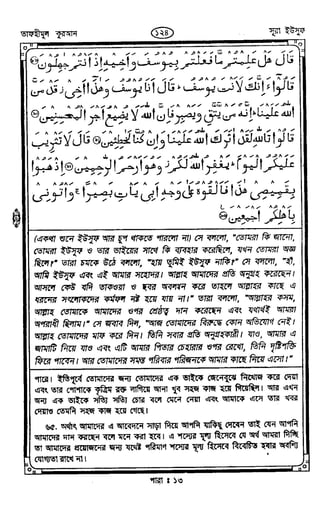 তাফহীমুল কুরআন ১২৪ সূরা ইউসুফ
قَالَ هَلْ عَلِمْتُمْ مَّا فَعَلْتُمْ بِيُوسُفَ وَأَخِيهِ إِذْ أَنْتُمْ جٰهِلُونَ
قَالُوٓا ءَاِنَّكَ لَأَنْتَ يُوسُفُ ؕ قَالَ أَنَا يُوسُفُ وَهٰذَآ أَخِي ز قَدْ مَنَّ
اللّٰهُ عَلَيْنَا ؕ إِنَّهٗ مَنْ يَّتَّقِ وَيَصْبِرْ فَإِنَّ اللّٰهَ لَا يُضِيعُ أَجْرَ الْمُحْسِنِينَ
قَالُوا تَاللّٰهِ لَقَدْ اٰثَرَكَ اللّٰهُ عَلَيْنَا وَإِنْ كُنَّا لَخٰطِئِينَ قَالَ لَا تَثْرِيبَ
عَلَيْكُمُ الْيَوْمَ ؕ يَغْفِرُ اللّٰهُ لَكُمْ ز وَهُوَ أَرْحَمُ الرّٰحِمِينَ اِذْهَبُوا
بِقَمِيصِي هٰذَا فَأَلْقُوهُ عَلٰى وَجْهِ أَبِي يَأْتِ بَصِيرًا ۚ وَأْتُونِي
بِأَهْلِكُمْ أَجْمَعِينَ
(একথা শুনে ইউসুফ আর চুপ থাকতে পারলো না) সে বললো, "তোমরা কি জানো,
তোমরা ইউসুফ ও তার ভাইয়ের সাথে কি ব্যবহার করেছিলে, যখন তোমরা অজ্ঞ
ছিলে?" তারা চমকে উঠে বললো, "হায় তুমিই ইউসুফ নাকি?" সে বললো, "হাঁ,
আমি ইউসুফ এবং এই আমার সহোদর। আল্লাহ আমাদের প্রতি অনুগ্রহ করেছেন।
আসলে কেউ যদি তাকওয়া ও ছবর অবলম্বন করে তাহলে আল্লাহর কাছে এ
ধরনের সৎলোকদের কর্মফল নষ্ট হয়ে যায় না।" তারা বললো, "আল্লাহর কসম,
আল্লাহ তোমাকে আমাদের ওপর শ্রেষ্ঠত্ব দান করেছেন এবং যথার্থই আমরা
অপরাধী ছিলাম।" সে জবাব দিল, "আজ তোমাদের বিরুদ্ধে কোন অভিযোগ নেই।
আল্লাহ তোমাদের মাফ করে দিন। তিনি সবার প্রতি অনুগ্রহকারী। যাও, আমার এ
জামাটি নিয়ে যাও এবং এটি আমার পিতার চেহারার ওপর রেখো, তিনি দৃষ্টিশক্তি
ফিরে পাবেন। আর তোমাদের সমস্ত পরিবার পরিজনকে আমার কাছে নিয়ে এসো।"
পারে। ইতিপূর্বে তোমাদের জন্য তোমাদের এক ভাইকে জেনেবুঝে নিখোঁজ করে দেয়া
এবং তার পোশাকে কৃত্রিম রক্ত লাগিয়ে আনা খুব সহজ কাজ হয়ে গিয়েছিল। আর এখন
অন্য এক ভাইকে সত্যি সত্যি চোর বলে মেনে নেয়া এবং আমাকে এসে তার খবর
দেয়াও তেমনি সহজ কাজ হয়ে গেছে।
৬৫. অর্থাৎ আমাদের এ আবেদনে সাড়া দিয়ে আপনি যাকিছু দেবেন তাই যেন আপনি
আমাদেরকে দান করছেন বলে মনে করা হবে। এ শস্যের মূল্য হিসেবে যে অর্থ আমরা দিচ্ছি
তা আমাদের প্রয়োজনের জন্য যথেষ্ট পরিমাণ শস্যের মূল্য হিসেবে বিবেচিত হবার অবশ্যি
যোগ্যতা রাখে না।
পারা : ১৩